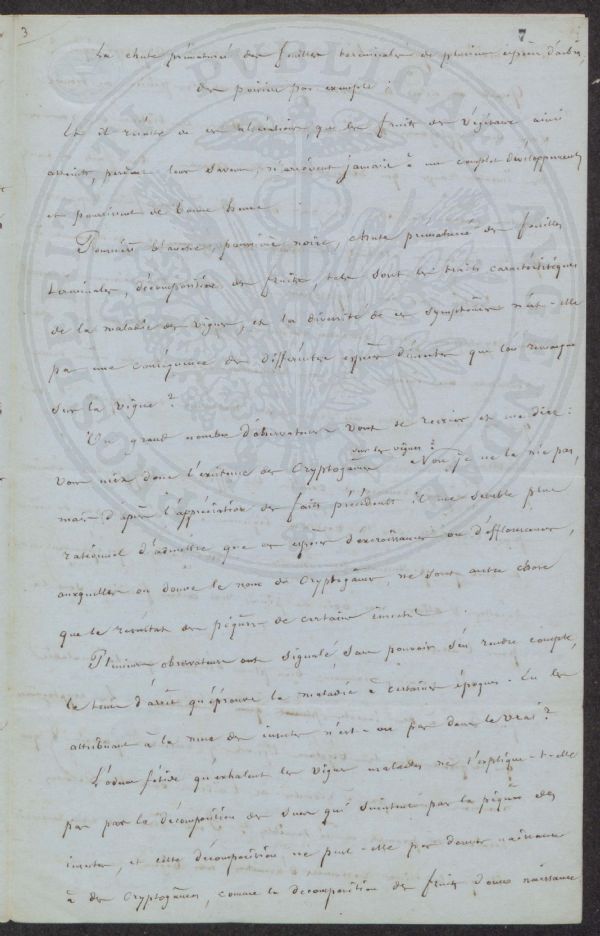 3
7
La chute prématurée des feuilles terminales de plusieurs espèces d'arbres,
des poiriers par exemple.
Et il résulte de ces altérations, que les fruits des végétaux ainsi
atteints, perdent leur saveur, n'arrivent jamais à un complet développement
et pourrissent de bonne heure.
blanche, poussière noire, chute prématurée des feuilles
terminales, décomposition des fruits, tels sont les traits caractéristiques
de la maladie des vignes, et la diversité de ces symptômes n'est-elle
pas une conséquence des différentes espèces d'insectes que l'on remarque
sur la vigne?
Un grand nombre d'observateurs vont se récrier et me dire:
sur les vignes?
vous niez donc l'existence des Cryptogames Non je ne la nie pas,
mais d'après l'appréciation des faits précédents il me semble plus
rationnel d'admettre que ces espèces d'excroissances ou d'efflorescences,
auxquelles on donne le nom de Cryptogames, ne sont autre chose
que le résultat des piqûres de certains insectes.
Plusieurs observateurs ont signalé, sans pouvoir s'en rendre compte,
le temps d'arrêt qu'éprouve la maladie à certaines époques. En les
attribuant à la mue des insectes n'est-on pas dans le vrai?
L'odeur fétide qu'exhalent les vignes malades ne s'explique-t-elle
pas par la décomposition des sucs qui suintent par la piqûre des
insectes, et cette décomposition ne peut-elle pas donner naissance
à des Cryptogames, comme la décomposition des fruits donne naissance